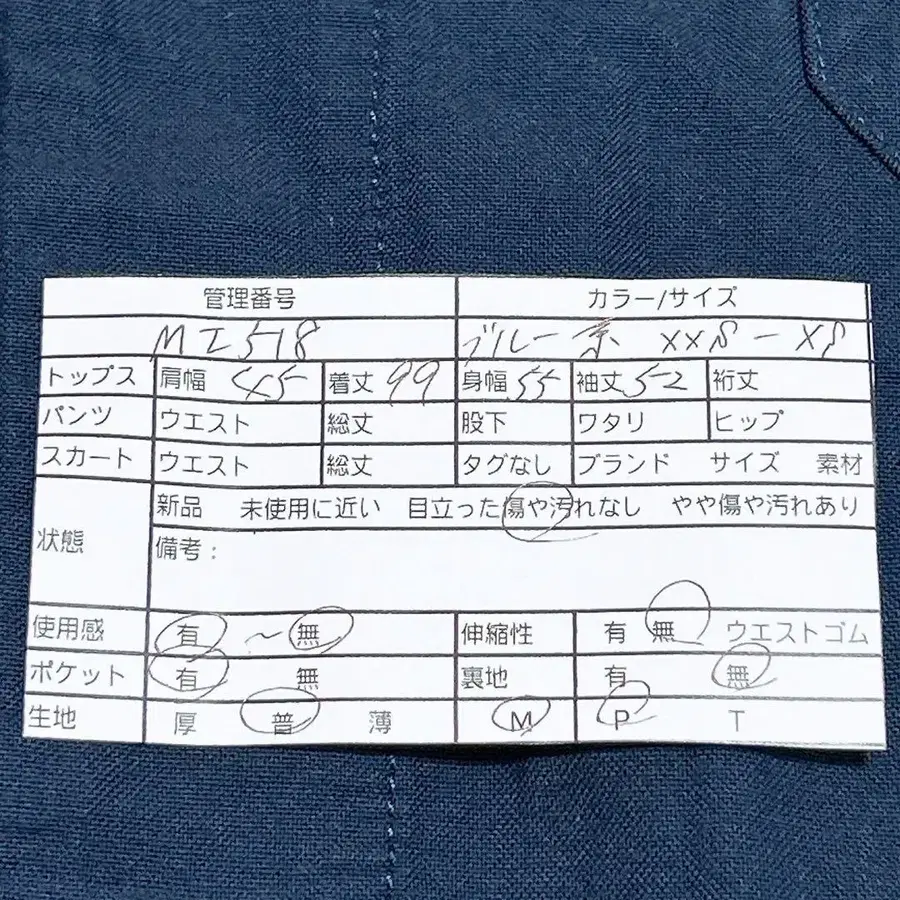 管理番号 カラー/サイズ
MI518 ブルー系 XXS-XS
トップス 肩幅 45 着丈 99 身幅 55 袖丈 52 裄丈
パンツ ウエスト 総丈 股下 ワタリ ヒップ
スカート ウエスト 総丈 タグなし ブランド サイズ 素材
状態 新品 未使用に近い 目立った傷や汚れなし やや傷や汚れあり
備考:
使用感 有 ~ 無 伸縮性 有 無 ウエストゴム
ポケット 有 無 裏地 有 無
生地 厚 普 薄 M P T